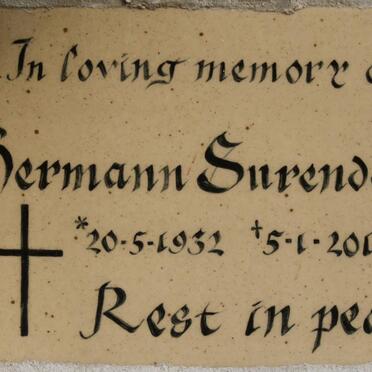 In loving memory o
Hermann Surend
*20-5-1932 †5-1-201
Rest in pea